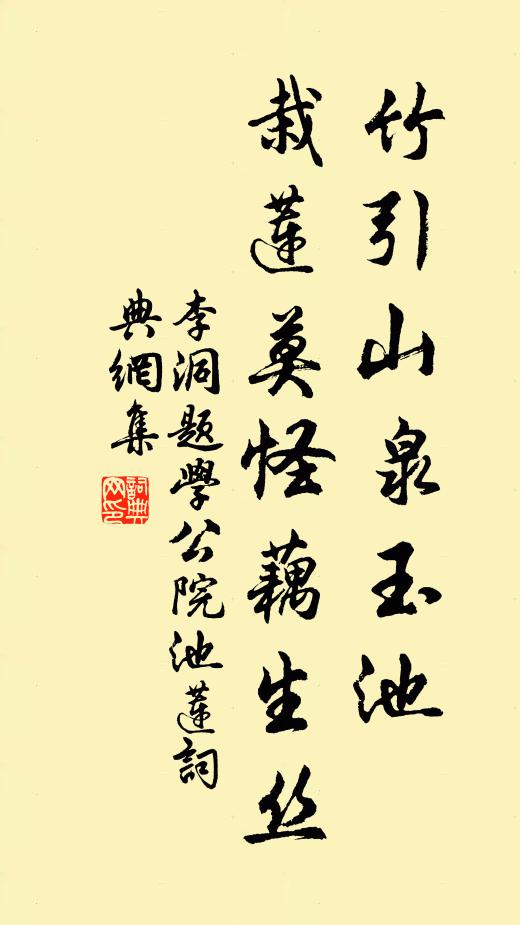 竹引山泉玉池
栽蓮莫怪藕生丝
李洞题學公院池蓮詞
典網集
詞典网印